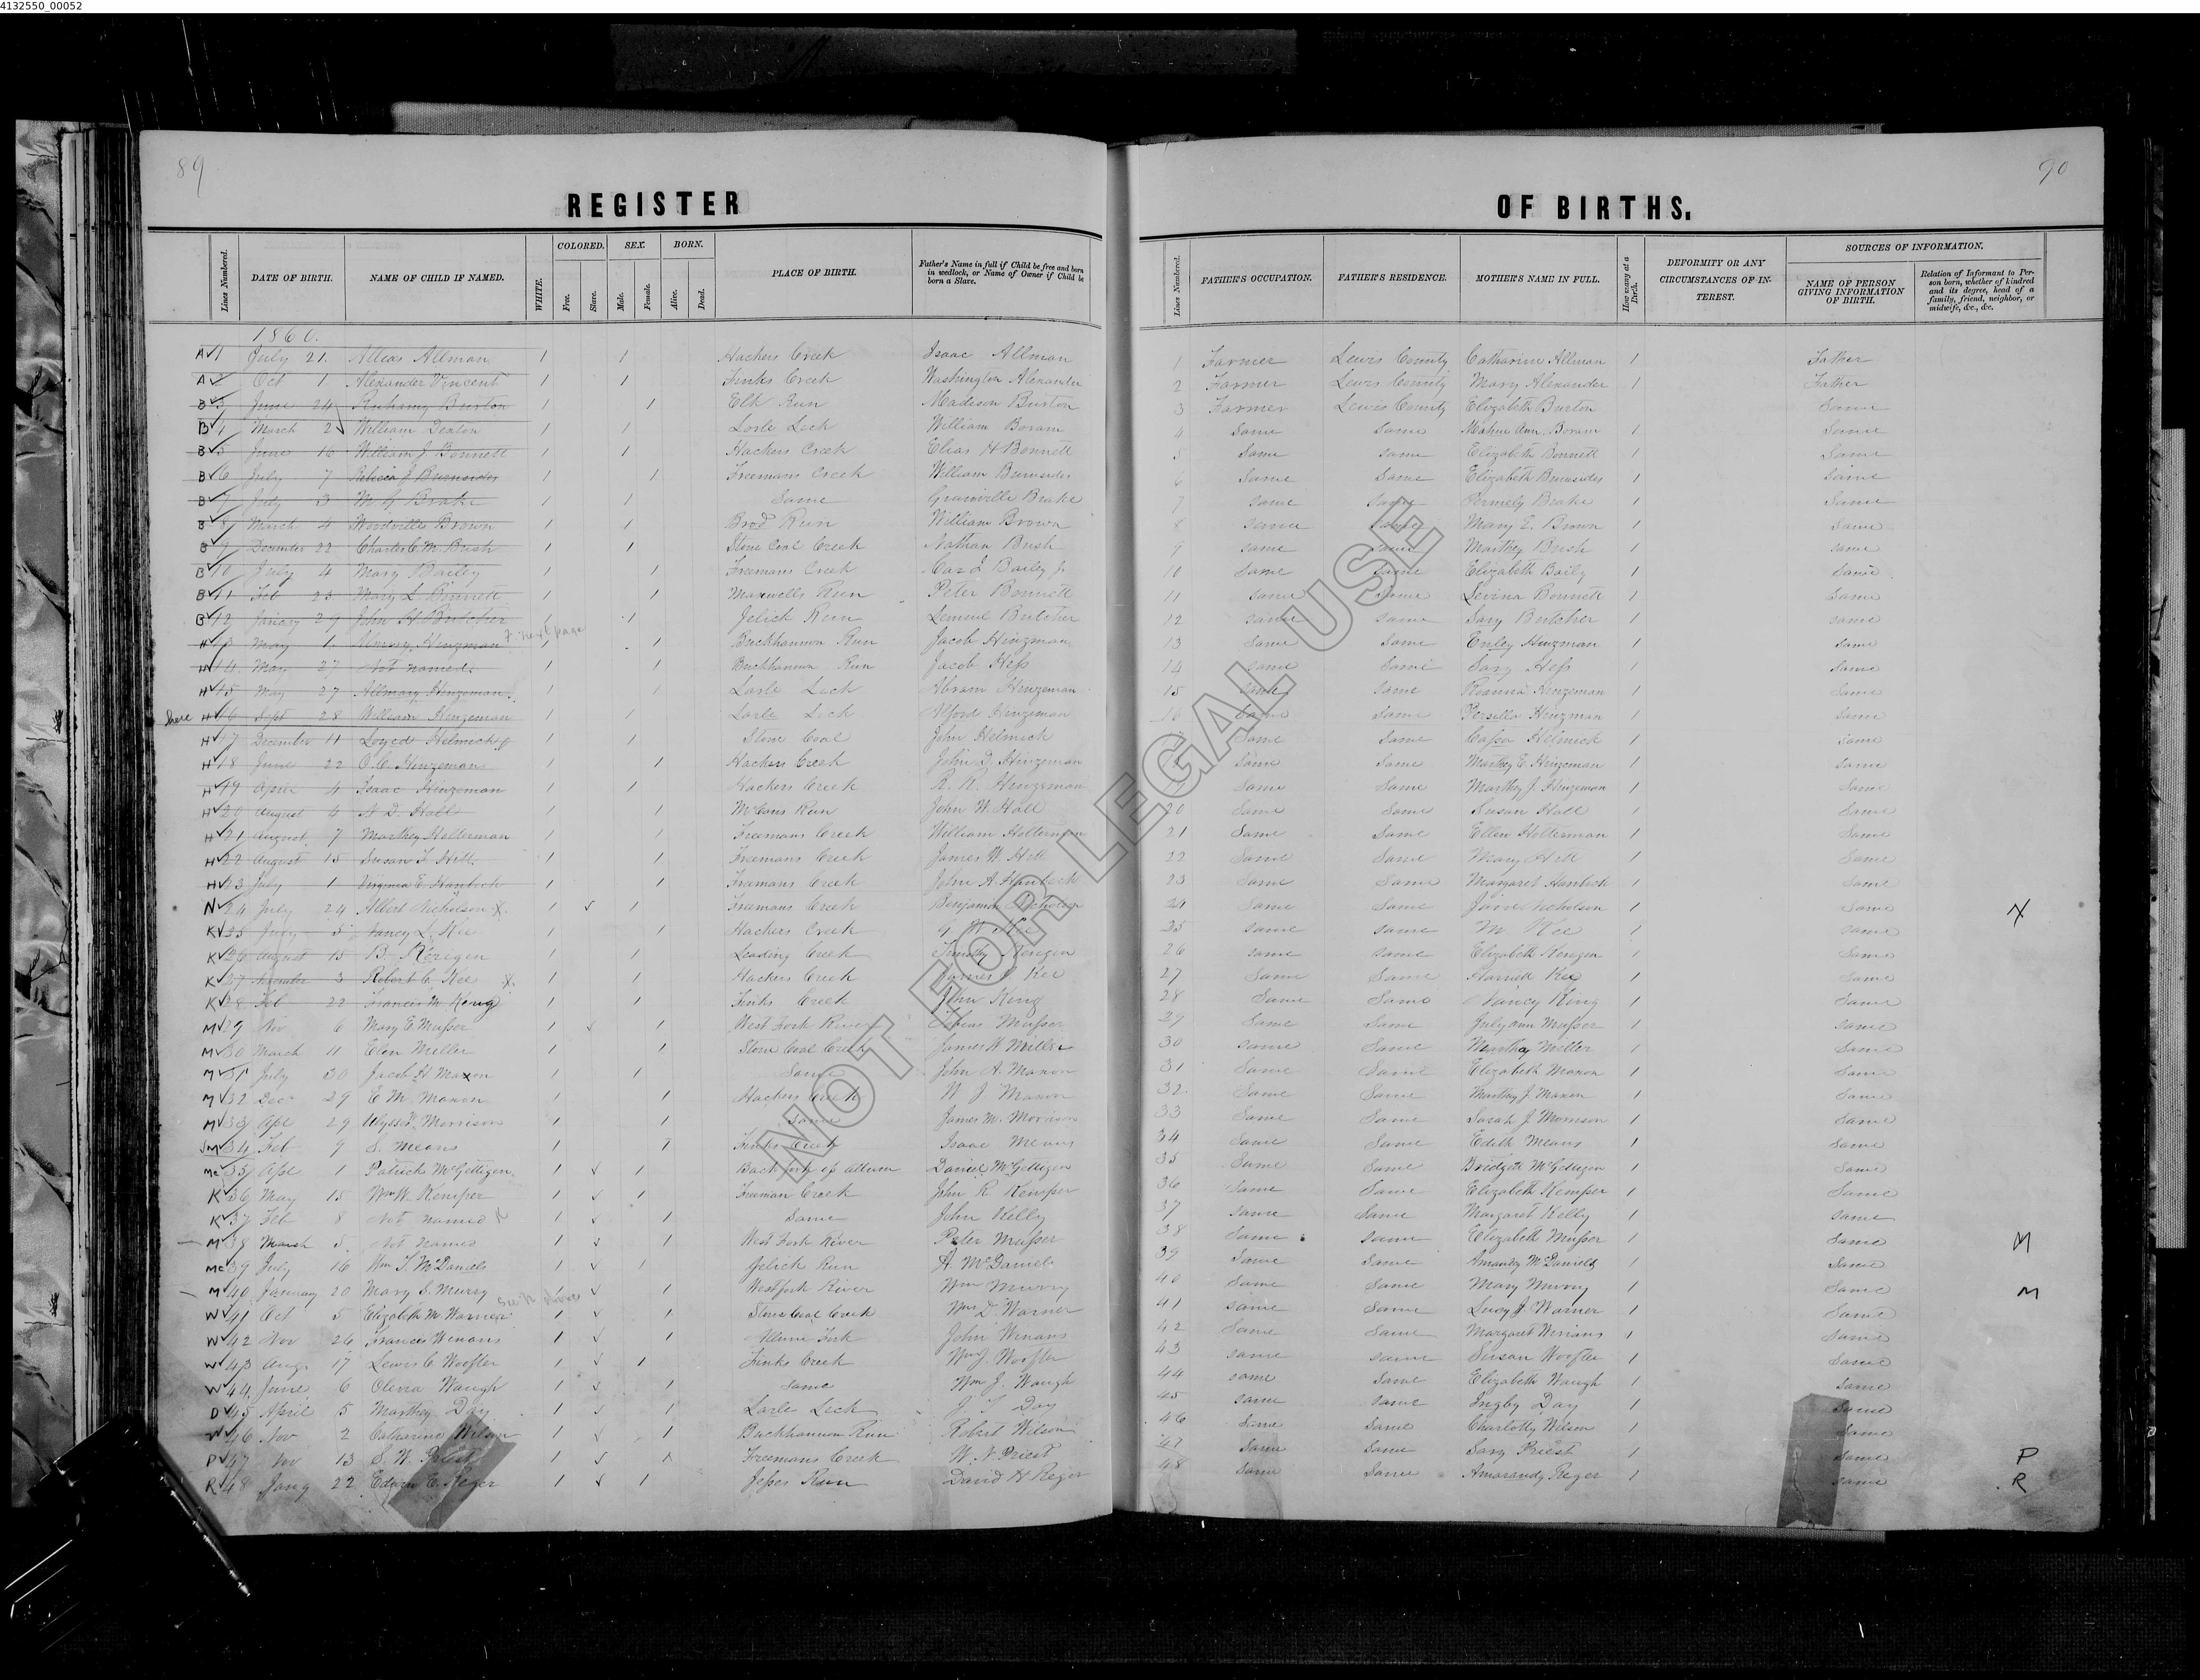 4132550_00052
89
90
REGISTER OF BIRTHS.
Lines Numbered. DATE OF BIRTH. NAME OF CHILD IF NAMED. WHITE. COLORED. Free. Slave. SEX. Male. Female. BORN. Alive. Dead. PLACE OF BIRTH. Father's Name in full if Child be free and born in wedlock, or Name of Owner if Child be born a Slave.
Lines Numbered. FATHER'S OCCUPATION. FATHER'S RESIDENCE. MOTHER'S NAME IN FULL. How many at a Birth. DEFORMITY OR ANY CIRCUMSTANCES OF INTEREST. SOURCES OF INFORMATION. NAME OF PERSON GIVING INFORMATION OF BIRTH. Relation of Informant to Person born, whether of kindred and its degree, head of a family, friend, neighbor, or midwife, &c., &c.
1860.
A 1 July 21. Allman 1 1 Hackers Creek Isaac Allman 1 Farmer Lewis County Catharine Allman 1 Father
A 2 Oct 1 Alexander Vincent 1 1 Finks Creek Washington Alexander 2 Farmer Lewis County Mary Alexander 1 Father
B 3 June 24 Ruhamy Burton 1 1 Elk Run Madison Burton 3 Farmer Lewis County Elizabeth Burton Same
B March 2 William Denton 1 1 Lorle Lick William Boram 4 Same Same Ann Boram 1 Same
B 5 June 16 William J Bonnett 1 1 Hackers Creek Elias H Bonnett 5 Same Same Elizabeth Bonnett 1 Same
B 6 July 7 J Burnsides 1 1 Freemans Creek William Burnsides 6 Same Same Elizabeth Burnsides 1 Same
B 7 July 3 M G Brake 1 1 Same Granville Brake 7 Same Same Permely Brake 1 Same
B 8 March 4 Woodville Brown 1 1 Brod Run William Brown 8 Same Same Mary E. Brown 1 Same
B 9 December 22 Charles C. M. Bush 1 1 Stone Coal Creek Nathan Bush 9 Same Same Marthey Bush 1 Same
B 10 July 4 Mary Bailey 1 1 Freemans Creek Bailey 10 Same Same Elizabeth Baily 1 Same
B 11 Feb 23 Mary L Bonnett 1 1 Maxwells Run Peter Bonnett 11 Same Same Levina Bonnett 1 Same
B 12 January 29 John H Butcher 1 1 Jelick Run Lemuel Butcher 12 Same Same Sary Butcher 1 Same
next page
H 13 May 1 Hinzman 1 1 Buckhannon Run Jacob Hinzman 13 Same Same Emley Hinzman 1 Same
H 14 May 27 Not named 1 1 Buckhannon Run Jacob Hess 14 Same Same Sary Hess 1 Same
H 15 May 27 Allmary Hinzeman 1 1 Lorle Lick Abram Hinzeman 15 Same Same Roanna Hinzeman 1 Same
here H 16 Sept 28 William Hinzeman 1 1 Lorle Lick Alford Hinzeman 16 Same Same Persilla Hinzman 1 Same
H 17 December 11 Loyed Helmick 1 1 Stone Coal John Helmick Same Same Cassa Helmick 1 Same
H 18 June 22 O. C. Hinzeman 1 1 Hackers Creek John D. Hinzeman Same Same Marthey E. Hinzeman 1 Same
H 19 April 4 Isaac Hinzeman 1 1 Hackers Creek R. R. Hinzeman Same Same Marthey J. Hinzeman 1 Same
H 20 August 4 A D. Hall 1 1 McCans Run John W. Hall 20 Same Same Susan Hall 1 Same
H 21 August 7 Marthey Holterman 1 1 Freemans Creek William Holterman 21 Same Same Ellen Holterman 1 Same
H 22 August 15 Susan F. Hill 1 1 Freemans Creek James W. Hill 22 Same Same Mary Hill 1 Same
H 23 July 1 Virginia E. Hanbeck 1 1 Freemans Creek John A. Hanbeck 23 Same Same Margaret Hanbeck 1 Same
N 24 July 24 Albert Nicholson X. 1 ✓ 1 Freemans Creek Benjamin Nicholson 24 Same Same Jane Nicholson 1 Same X
K 25 July 5 Nancy L. Kee 1 1 Hackers Creek G W Kee 25 Same Same M Kee 1 Same
K 26 August 15 B. Keregen 1 1 Leading Creek Timothy Keregen 26 Same Same Elizabeth Keregen 1 Same
K 27 November 3 Robert C. Kee X. 1 1 Hackers Creek James C. Kee 27 Same Same Harriet Kee 1 Same
K 28 Feb 22 Francis M King 1 1 Finks Creek John King 28 Same Same Nancy King 1 Same
M 29 Nov 6 Mary E Musser 1 ✓ 1 West Fork River Musser 29 Same Same July ann Musser 1 Same
M 30 March 11 Elen Miller 1 1 Stone Coal Creek James W Miller 30 Same Same Marthey Miller 1 Same
M 31 July 30 Jacob H. Maxon 1 1 Same John A. Maxon 31 Same Same Elizabeth Maxon 1 Same
M 32 Dec 29 E M. Maxon 1 1 Hackers Creek W J Maxon 32 Same Same Marthey J. Maxon 1 Same
M 33 Apl 29 Morrison 1 1 Same James M. Morrison 33 Same Same Sarah J Morrison 1 Same
M 34 Feb 9 S. Means 1 1 Finks Creek Isaac Means 34 Same Same Edith Means 1 Same
Mc 35 Apl 1 Patrick McGettigen 1 ✓ 1 Back fork of allum Daniel McGettigen 35 Same Same Bridgett McGettigen 1 Same
K 36 May 15 Wm W. Kemper 1 ✓ 1 Freeman Creek John R. Kemper 36 Same Same Elizabeth Kemper 1 Same
K 37 Feb 8 Not named K 1 ✓ 1 Same John Kelly 37 Same Same Margaret Kelly 1 Same
M 38 March 5 Not named 1 ✓ 1 West Fork River Peter Musser 38 Same Same Elizabeth Musser 1 Same M
Mc 39 July 16 Wm T. McDaniels 1 ✓ 1 Jelick Run A. McDaniels 39 Same Same Amandy McDaniels 1 Same
M 40 January 20 Mary S. Murry ✓ 1 Westfork River Wm Murry 40 Same Same Mary Murry 1 Same M
W 41 Oct 5 Elizabeth M Warner 1 ✓ 1 Stone Coal Creek Wm D. Warner 41 Same Same Lucy J. Warner 1 Same
W 42 Nov 26 Francis Winans 1 ✓ 1 Allum Fork John Winans 42 Same Same Margaret Winans 1 Same
W 43 Aug. 17 Lewis C. Woofter 1 ✓ 1 Finks Creek Wm J. Woofter 43 Same Same Susan Woofter 1 Same
W 44 June 6 Olevia Waugh 1 ✓ 1 Same Wm J. Waugh 44 Same Same Elizabeth Waugh 1 Same
D 45 April 5 Marthey Day 1 ✓ 1 Lorle Lick J T Day 45 Same Same Ingby Day 1 Same
W 46 Nov 2 Catharine Wilson 1 ✓ 1 Buckhannon Run Robert Wilson 46 Same Same Charlotty Wilson 1 Same
P 47 Nov 13 S. W. Priest 1 ✓ 1 Freemans Creek W. N. Priest 47 Same Same Sary Priest 1 Same P
R 48 Jany 22 Edwin E. Reger 1 ✓ 1 Jesses Run David H Reger 48 Same Same Amarandy Reger 1 Same R
NOT FOR LEGAL USE